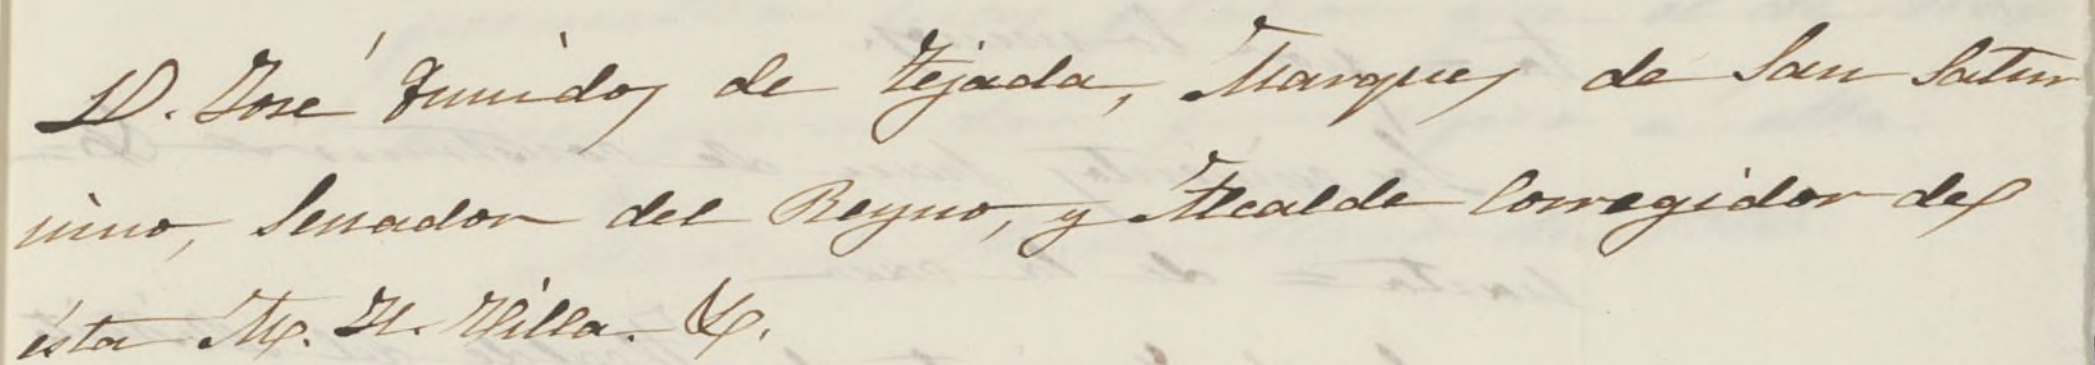 D. José Quuidos de Tejada, Marques de San Satur
nino, Senador del Reyno, y Alcalde Corregidor de
ésta M. H. Villa. &.